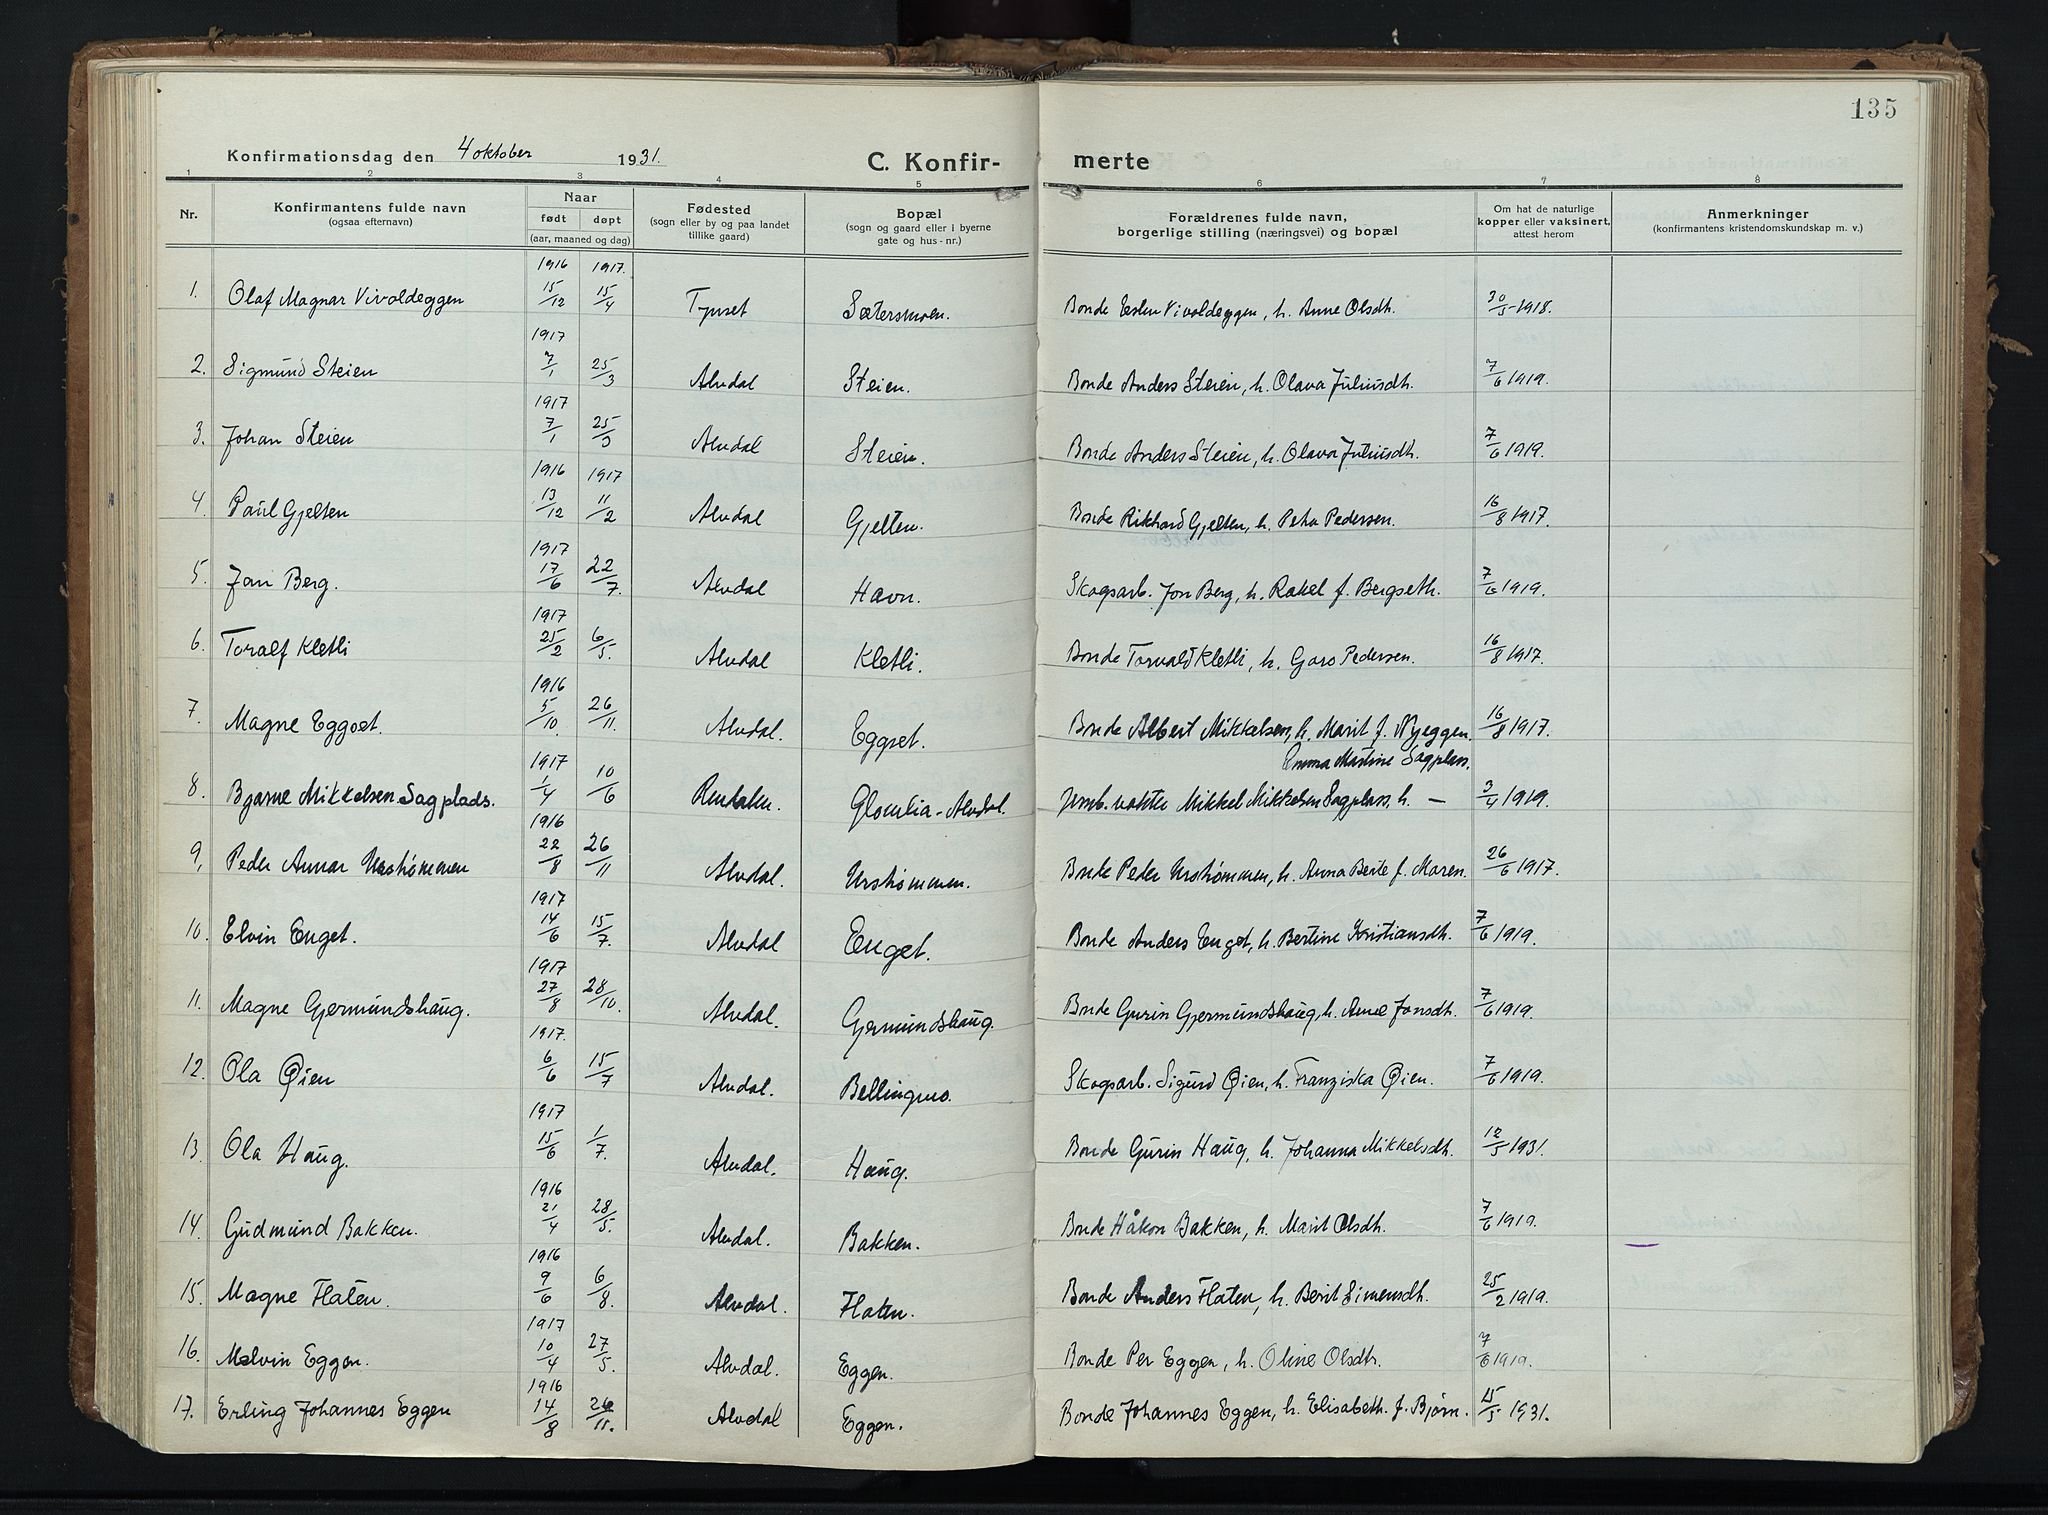 135
Konfirmationsdag den 4 oktober 1931.
C. Konfir- merte
1 2 3 4 5 6 7 8
Nr.
Konfirmantens fulde navn
(ogsaa efternavn)
Naar
født døpt
(aar, maaned og dag)
Fødested
(sogn eller by og paa landet
tillike gaard)
Bopæl
(sogn og gaard eller i byerne
gate og hus-nr.)
Forældrenes fulde navn,
borgerlige stilling (næringsvei) og bopæl
Om hat de naturlige
kopper eller vaksinert,
attest herom
Anmerkninger
(konfirmantens kristendomskundskap m. v.)
1916 1917.
1. Olaf Magnar Vivoldeggen 15/12 15/4 Tynset Sætersmoen. Bonde Esten Vivoldeggen, h. Anne Olsdh. 30/5 1918.
1917
2. Sigmund Steien 7/1 25/3 Alvdal Steien. Bonde Anders Steien, h. Olava Juliusdh. 7/6 1919.
1917
3. Johan Steien 7/1 25/3 Alvdal Steien. Bonde Anders Steien, h. Olava Juliusdh. 7/6 1919.
1916 1917
4. Paul Gjelten 13/12 11/2 Alvdal Gjelten. Bonde Rikhard Gjelten, h. Petra Pedersen. 16/8 1917.
1917
5. Jan Berg. 17/6 22/7. Alvdal Havn. Skogsarb. Jon Berg, h. Rakel f. Bergseth. 7/6 1919.
1917
6. Toralf Kletli 25/2 6/5. Alvdal Kletli. Bonde Torvald Kletli, h. Goro Pedersen. 16/8 1917.
1916
7. Magne Eggset. 5/10. 26/11. Alvdal. Eggset. Bonde Albert Mikkelsen, h. Marit f. Nyeggen. 16/8 1917.
Emma Martine Sagplass.
1917
8. Bjarne Mikkelsen Sagplads. 1/4 10/6 Rendalen. Glomlia-Alvdal. Jernb.vokter Mikkel Mikkelsen Sagplass, h. — 3/4 1919.
1916
9. Peder Annar Urstrømmen 22/8 26/11 Alvdal. Urstrømmen. Bonde Peder Urstrømmen, h. Anna Berte f. Moren. 26/6 1917.
1917
10. Elvin Enget. 14/6 15/7. Alvdal Enget. Bonde Anders Enget, h. Bertine Kristiansdh. 7/6 1919.
1917
11. Magne Gjermundshaug. 27/8 28/10. Alvdal. Gjermundshaug. Bonde Gurin Gjermundshaug, h. Anne Jonsdh. 7/6 1919.
1917.
12. Ola Øien 6/6 15/7 Alvdal. Bellingmo. Skogsarb. Sigurd Øien, h. Franziska Øien. 7/6 1919.
1917
13. Ola Haug. 15/6 1/7. Alvdal. Haug. Bonde Gurin Haug, h. Johanna Mikkelsdh. 12/5 1931.
1916
14. Gudmund Bakken. 21/4 28/5. Alvdal. Bakken. Bonde Håkon Bakken, h. Marit Olsdh. 7/6 1919.
1916
15. Magne Flaten. 9/6 6/8. Alvdal. Flaten. Bonde Anders Flaten, h. Berit Simensdh. 25/2 1919.
1917
16. Melvin Eggen. 10/4 27/5. Alvdal. Eggen. Bonde Per Eggen, h. Oline Olsdh. 7/6 1919.
1916
17. Erling Johannes Eggen 14/8 26/11. Alvdal Eggen. Bonde Johannes Eggen, h. Elisabeth f. Bjørn. 15/5 1931.